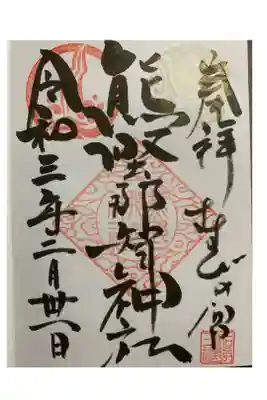 奉拝 むすびの宮
熊野那智神社
令和三年二月廿一日